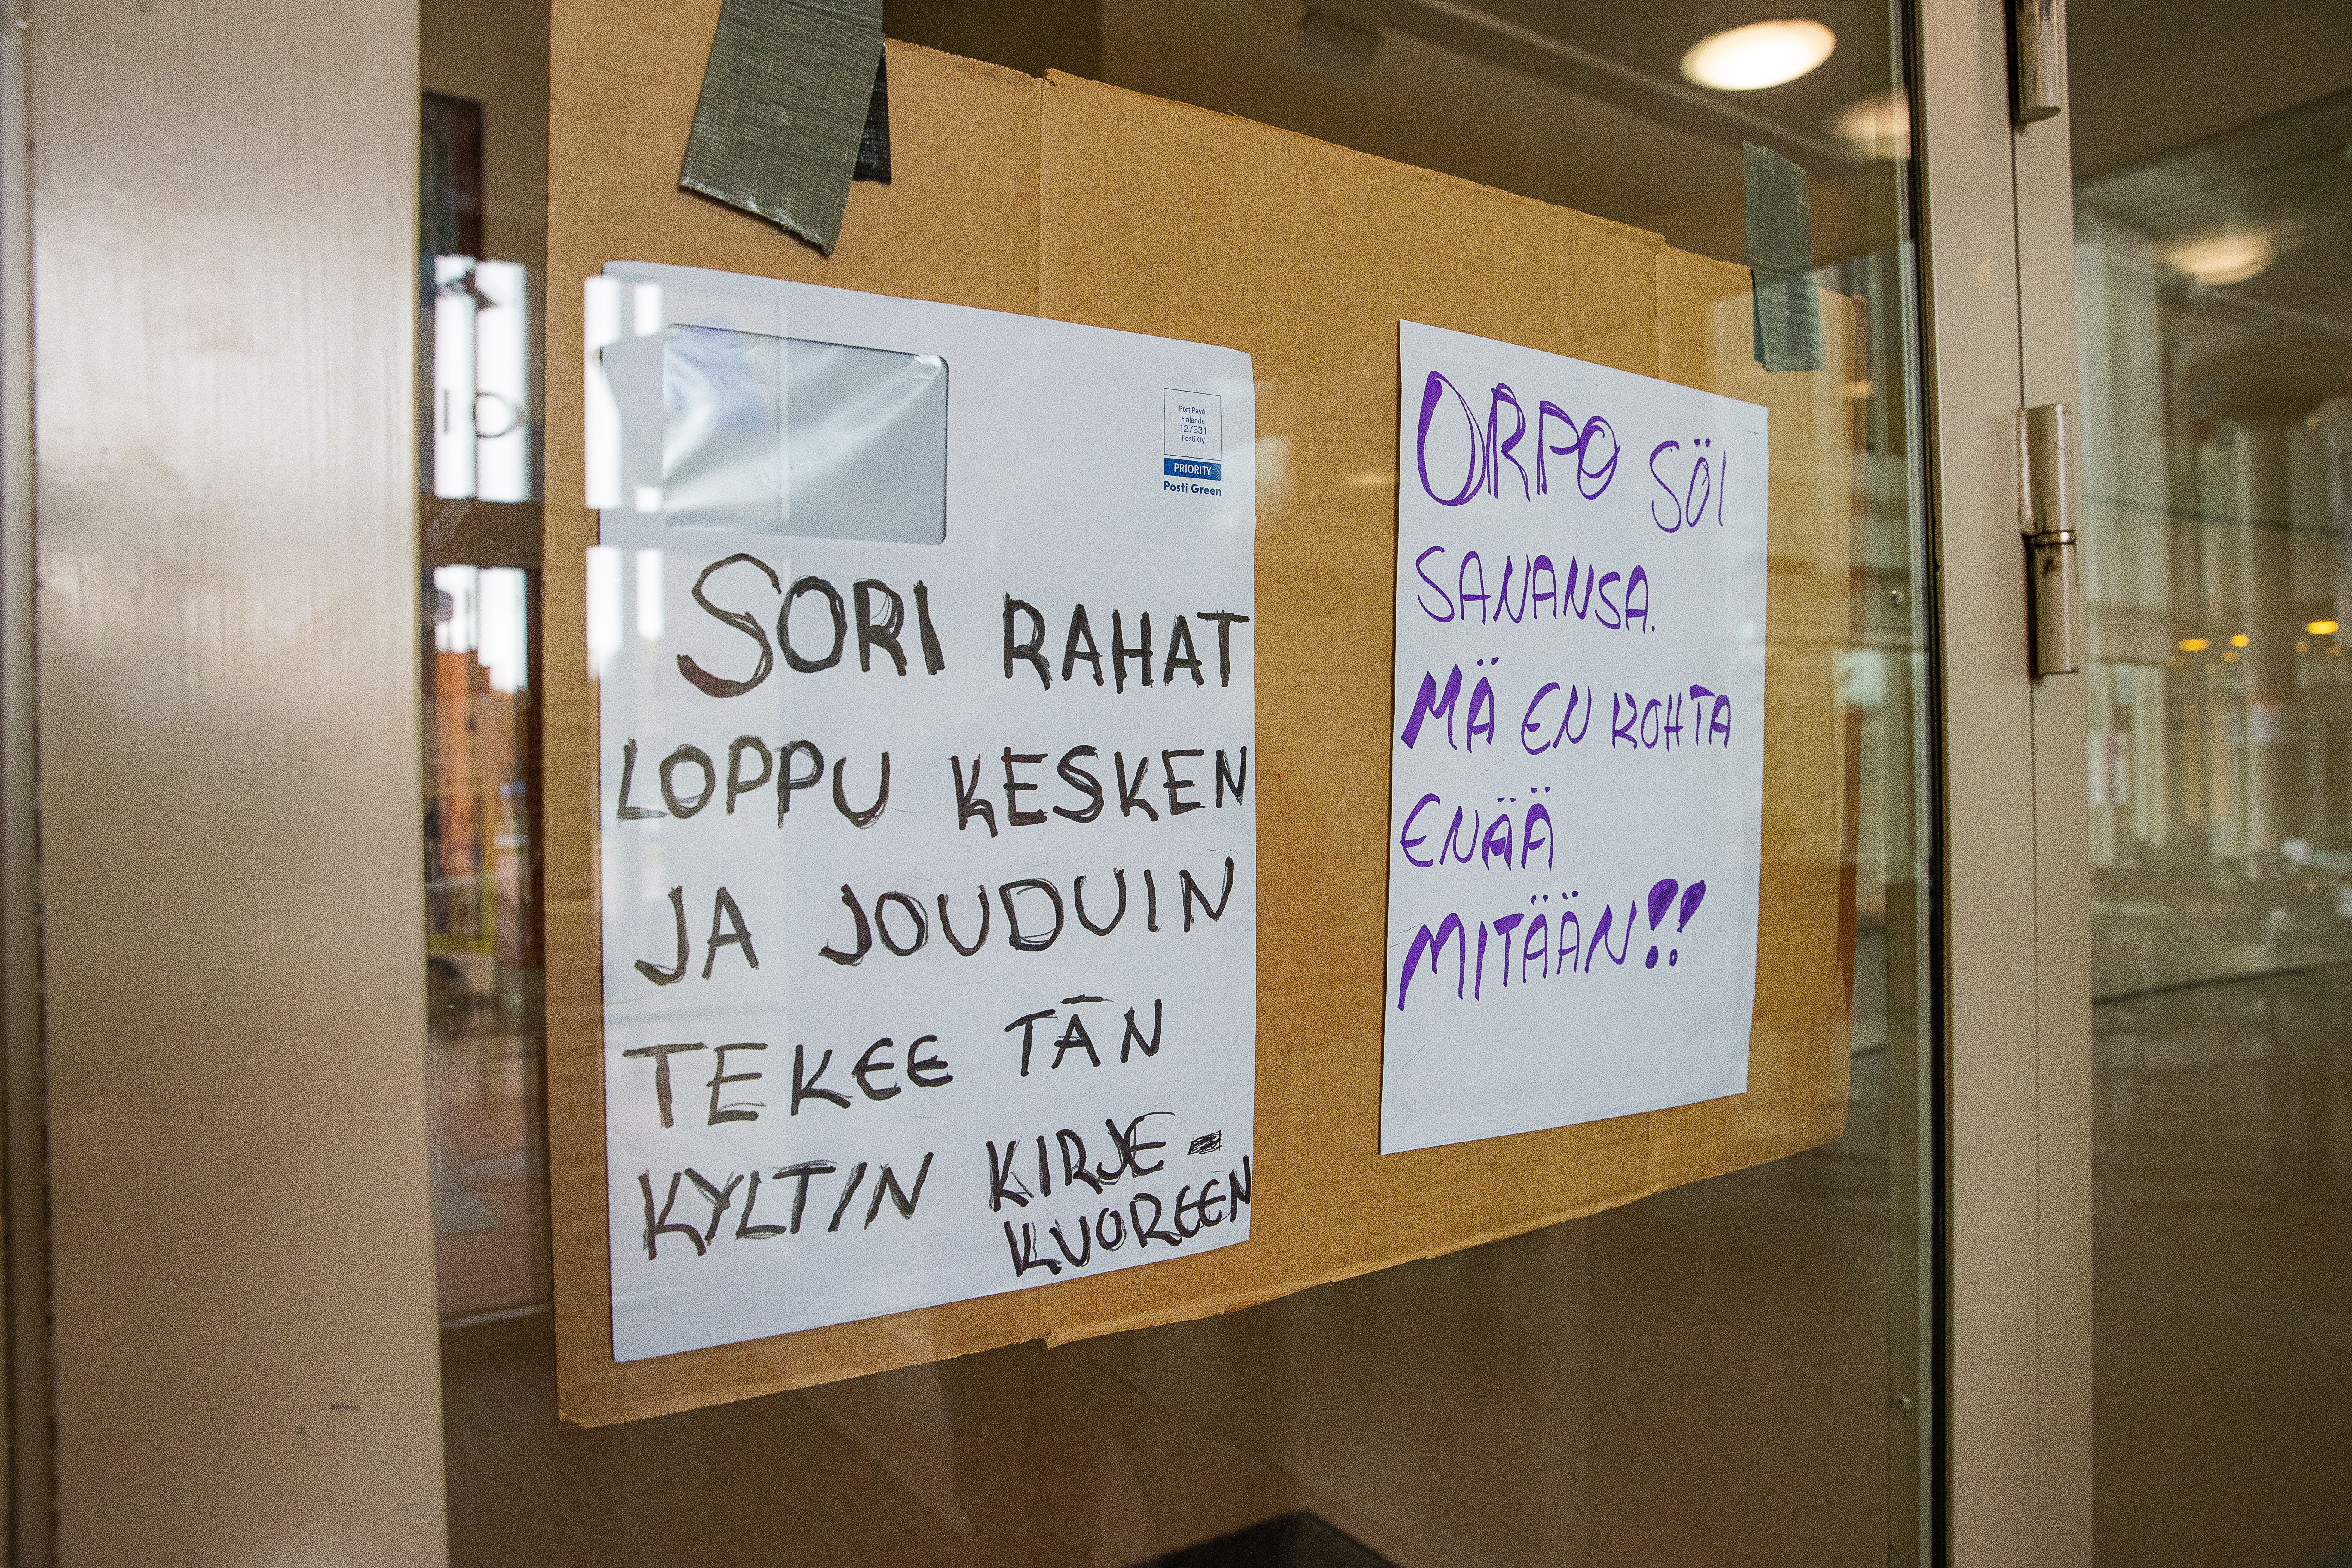 Port Payé
Finlande
127331
Posti Oy
PRIORITY
Posti Green
SORI RAHAT
LOPPU KESKEN
JA JOUDUIN
TEKEE TÄN
KYLTIN KIRJE-
KUOREEN
ORPO SÖI
SANANSA.
MÄ EN KOHTA
ENÄÄ
MITÄÄN!!